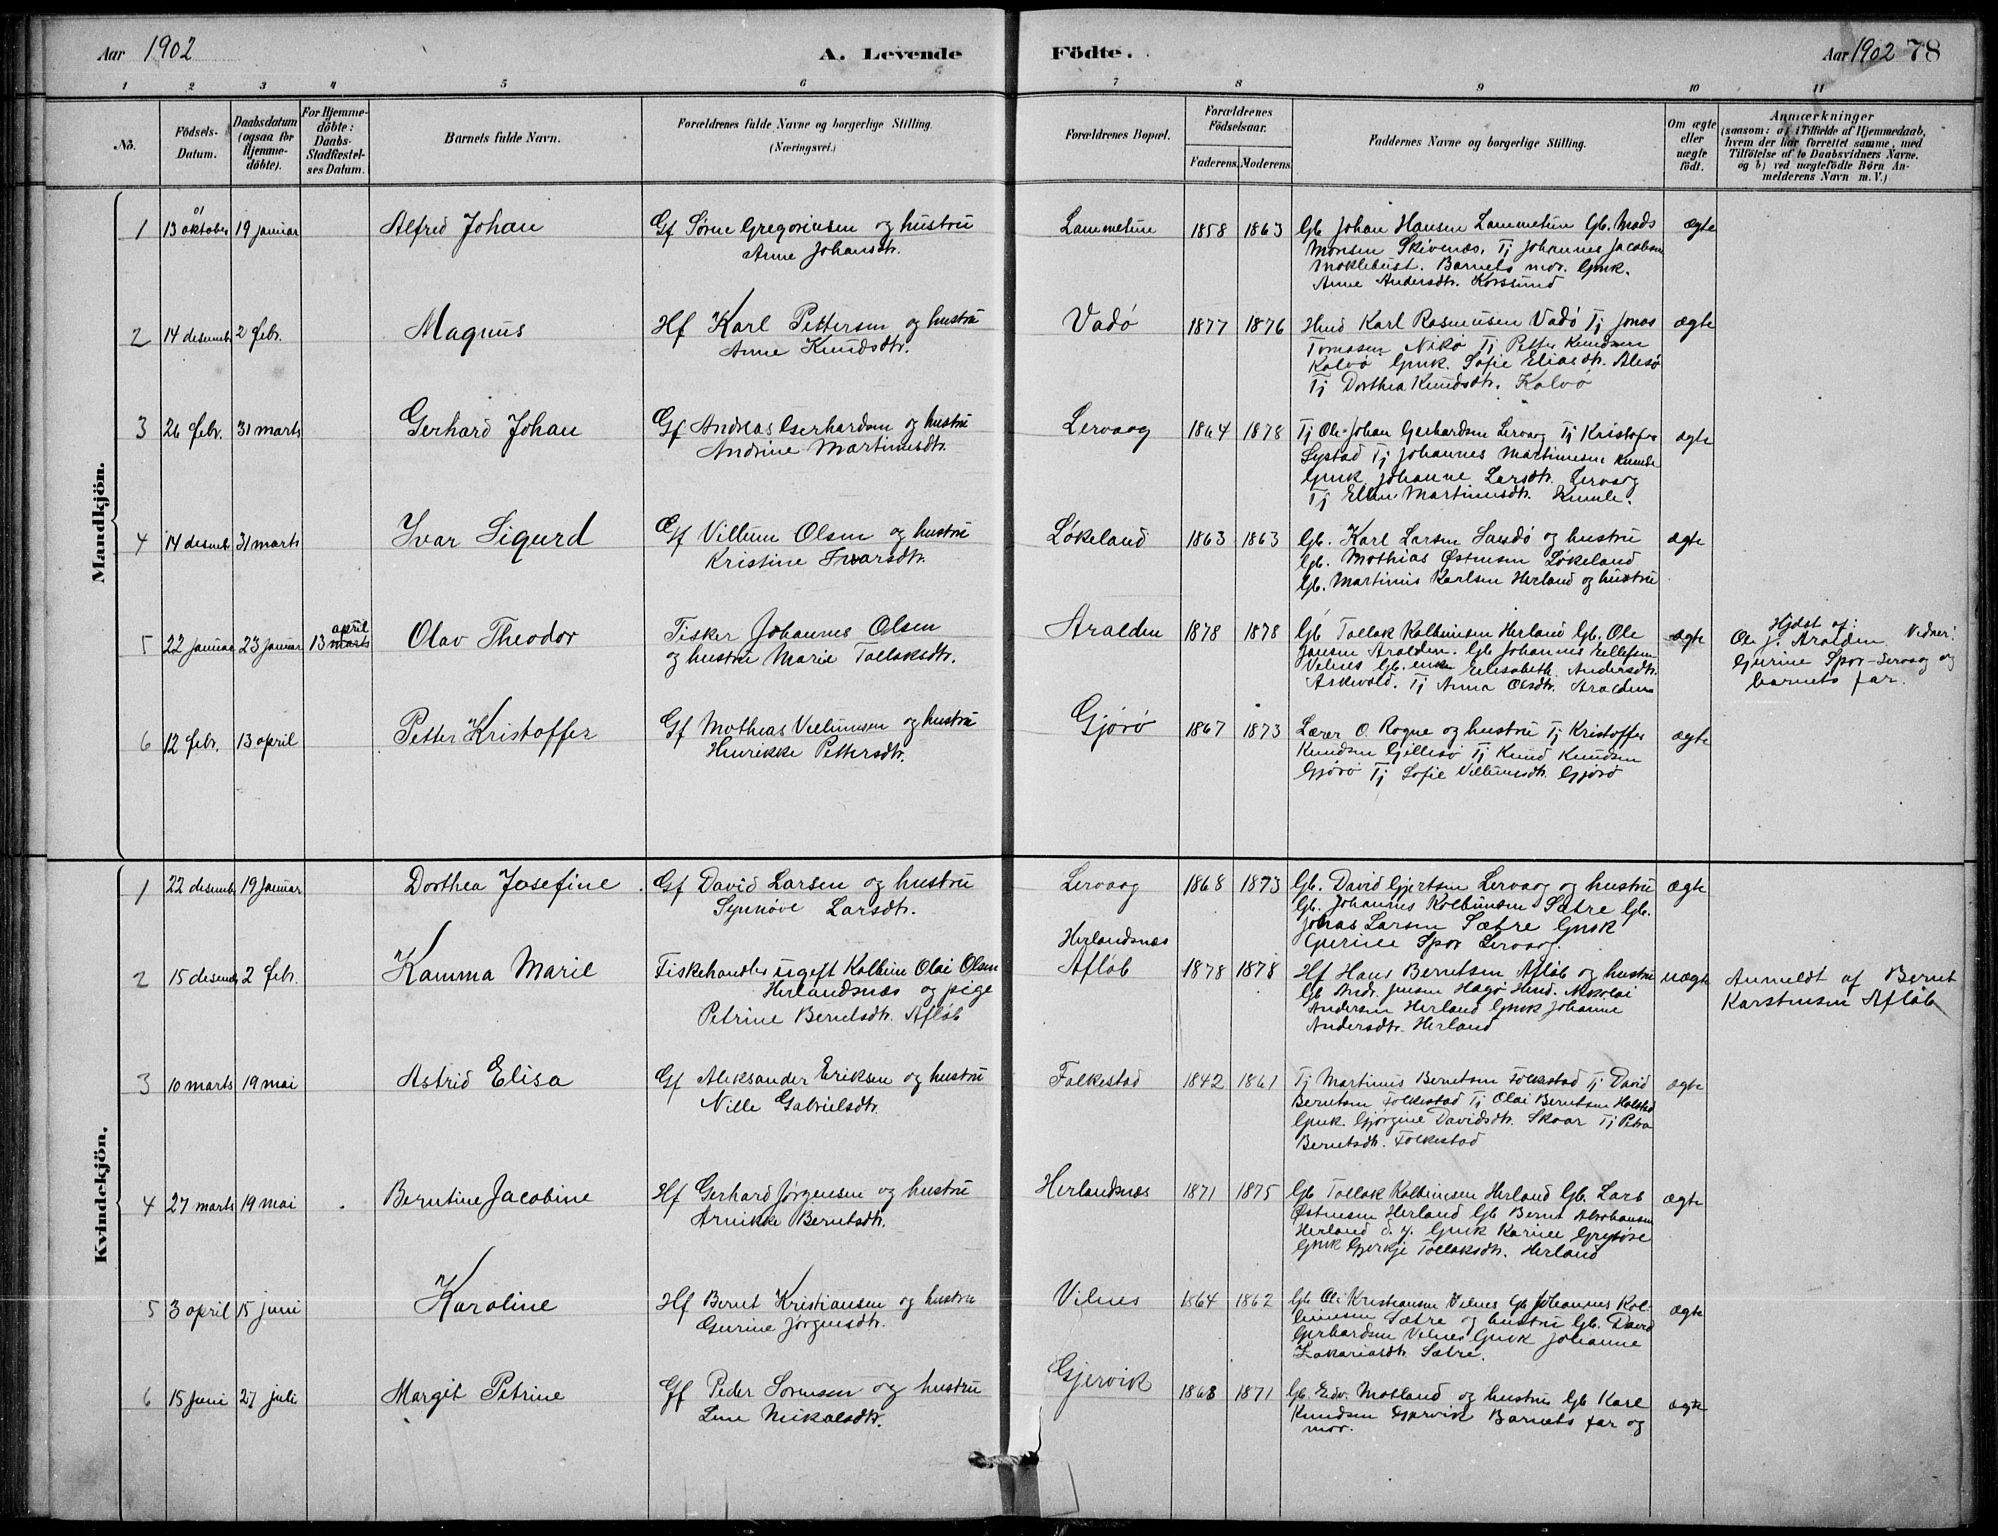 Aar 1902
A. Levende
Födte.
Aar 1902 78
1 2 3 4 5 6 7 8 9 10 11
No.
Födsels-
Datum.
Daabsdatum
(ogsaa for
Hjemme-
döbte).
For Hjemme-
döbte:
Daabs-
Stadfæstel-
ses Datum.
Barnets fulde Navn.
Forældrenes fulde Navne og borgerlige Stilling.
(Næringsvei.)
Forældrenes Bopæl.
Forældrenes
Födselsaar.
Faderens. Moderens.
Faddernes Navne og borgerlige Stilling.
Om ægte
eller
uægte
födt.
Anmærkninger
(saasom: a) i Tilfælde af Hjemmedaab,
hvem der har forrettet samme, med
Tilföielse af to Daabsvidners Navne.
og b) ved uægtefödte Börn An-
melderens Navn m. V.)
Mandkjön.
1 13 oktober 01 19 januar Alfred Johan
Gf Sørne Gregoriusen og hustru
Anne Johansdtr.
Lammetun 1858 1863
Gb Johan Hansen Lammetun Gb. Mads
Monsen Skivenæs. Tj Johannes Jacobsen
Moklebust. Barnets mor. Gmk.
Anne Andersdtr. Korssund
ægte
2 14 desemb. 2 febr. Magnus
Hf Karl Pettersen og hustru
Anne Knudsdtr.
Vadø 1877 1876
Hmd Karl Rasmusen Vadø Tj Jonas
Tomasen Nikø Tj Petter Knudsen
Kalvø Gmk. Sofie Eliasdtr. Alesø
Tj Dorthea Knudsdtr. Kalvø
ægte
3 26 febr. 31 marts Gerhard Johan
Gf Andreas Gerhardsen og hustru
Andrine Martinusdtr.
Lervaag 1864 1878
Tj Ole Johan Gerhardsen Lervaag Tj Kristofer
Systad Tj Johannes Martinusen Kumle
Gmk Johanne Larsdtr. Lervaag
Tj Ellen Martinusdtr. Kumle.
ægte
4 14 desemb. 31 marts Ivar Sigurd
Gf Villum Olsen og hustru
Kristine Ivarsdtr.
Løkeland 1863 1863
Gb. Karl Larsen Sandø og hustru
Gb. Mothias Østensen Løkeland
Gb. Martinus Karlsen Herland og hustru
ægte
5 22 januar 23 januar 13 marts april Olav Theodor
Fisker Johannes Olsen
og hustru Marie Tollaksdtr.
Aralden 1878 1878
Gb Tollak Kolbensen Herland Gb. Ole
Jansen Aralden. Gb Johannes Eellefsen
Vilnes Gb. enke Elisabeth Andersdtr.
Askvold. Tj Anna Olsdtr. Aralden
ægte
Hjdøbt af:
Ole J. Aralden. Vidner:
Gurine Spor-Lervaag og
barnets far.
6 12 febr. 13 april Petter Kristoffer
Gf Mothias Villumsen og hustru
Henrikke Pettersdtr.
Gjørø 1867 1873
Lærer O. Rogne og hustru Tj Kristoffer
Knudsen Gillesø Tj Knud Knudsen
Gjørø Tj Sofie Villumsdtr. Gjørø
ægte
Kvindekjön.
1 22 desemb. 19 januar Dorthea Josefine
Gf David Larsen og hustru
Synnøve Larsdtr.
Lervaag 1868 1873
Gb. David Gjertsen Lervaag og hustru
Gb. Johannes Kolbensen Sætre Gb.
Jonas Larsen Sætre Gmk
Gurine Spor Lervaag.
ægte
2 15 desemb. 2 febr. Kamma Marie
Fiskehandler ugift Kolbein Olai Olsen
Herlandsnæs og pige
Petrine Berntsdtr. Afløb
Herlandsnæs
Afløb 1878 1878
Hf Hans Berntsen Afløb og hustru
Gb Andr. Jensen Hagø Hmd. Nikolai
Andersen Herland Gmk Johanne
Andersdtr. Herland
uægte
Anmeldt af Bernt
Karstensen Afløb
3 10 marts 19 mai Astrid Elisa
Gf Aleksander Eriksen og hustru
Nille Gabrielsdtr.
Folkestad 1842 1861
Tj Martinus Berntsen Folkestad Tj David
Berntsen Folkestad Tj Olai Berntsen Holstad
Gmk. Gjørgine Davidsdtr. Skaar Tj Petra
Berntsdtr. Folkestad
ægte
4 27 marts 19 mai Berntine Jacobine
Hf Gerhard Jørgensen og hustru
Arnikke Berntsdtr.
Herlandsnæs 1871 1875
Gb Tollak Kolbensen Herland Gb. Lars
Østensen Herland Gb Bernt Abrahansen
Herland d. y. Gmk Karine
Gmk Gjertje Tollaksdtr. Herland
ægte
5 3 april 15 juni Karoline
Hf Bernt Kristiansen og hustru
Gurine Jørgensdtr.
Vilnes 1864 1862
Gb Ole Kristiansen Vilnes Gb Johannes Kol-
bensen Sætre og hustru Gb. David
Gerhardsen Vilnes Gmk Johanne
Zakariasdtr. Sætre.
ægte
6 15 juni 27 juli Margit Petrine
Gf Peder Sorensen og hustru
Lene Nikolsdtr.
Gjervik 1868 1871
Gb. Edv. Motland og hustru Gb Karl
Knudsen Gjervik Barnets far og
mor.
ægte